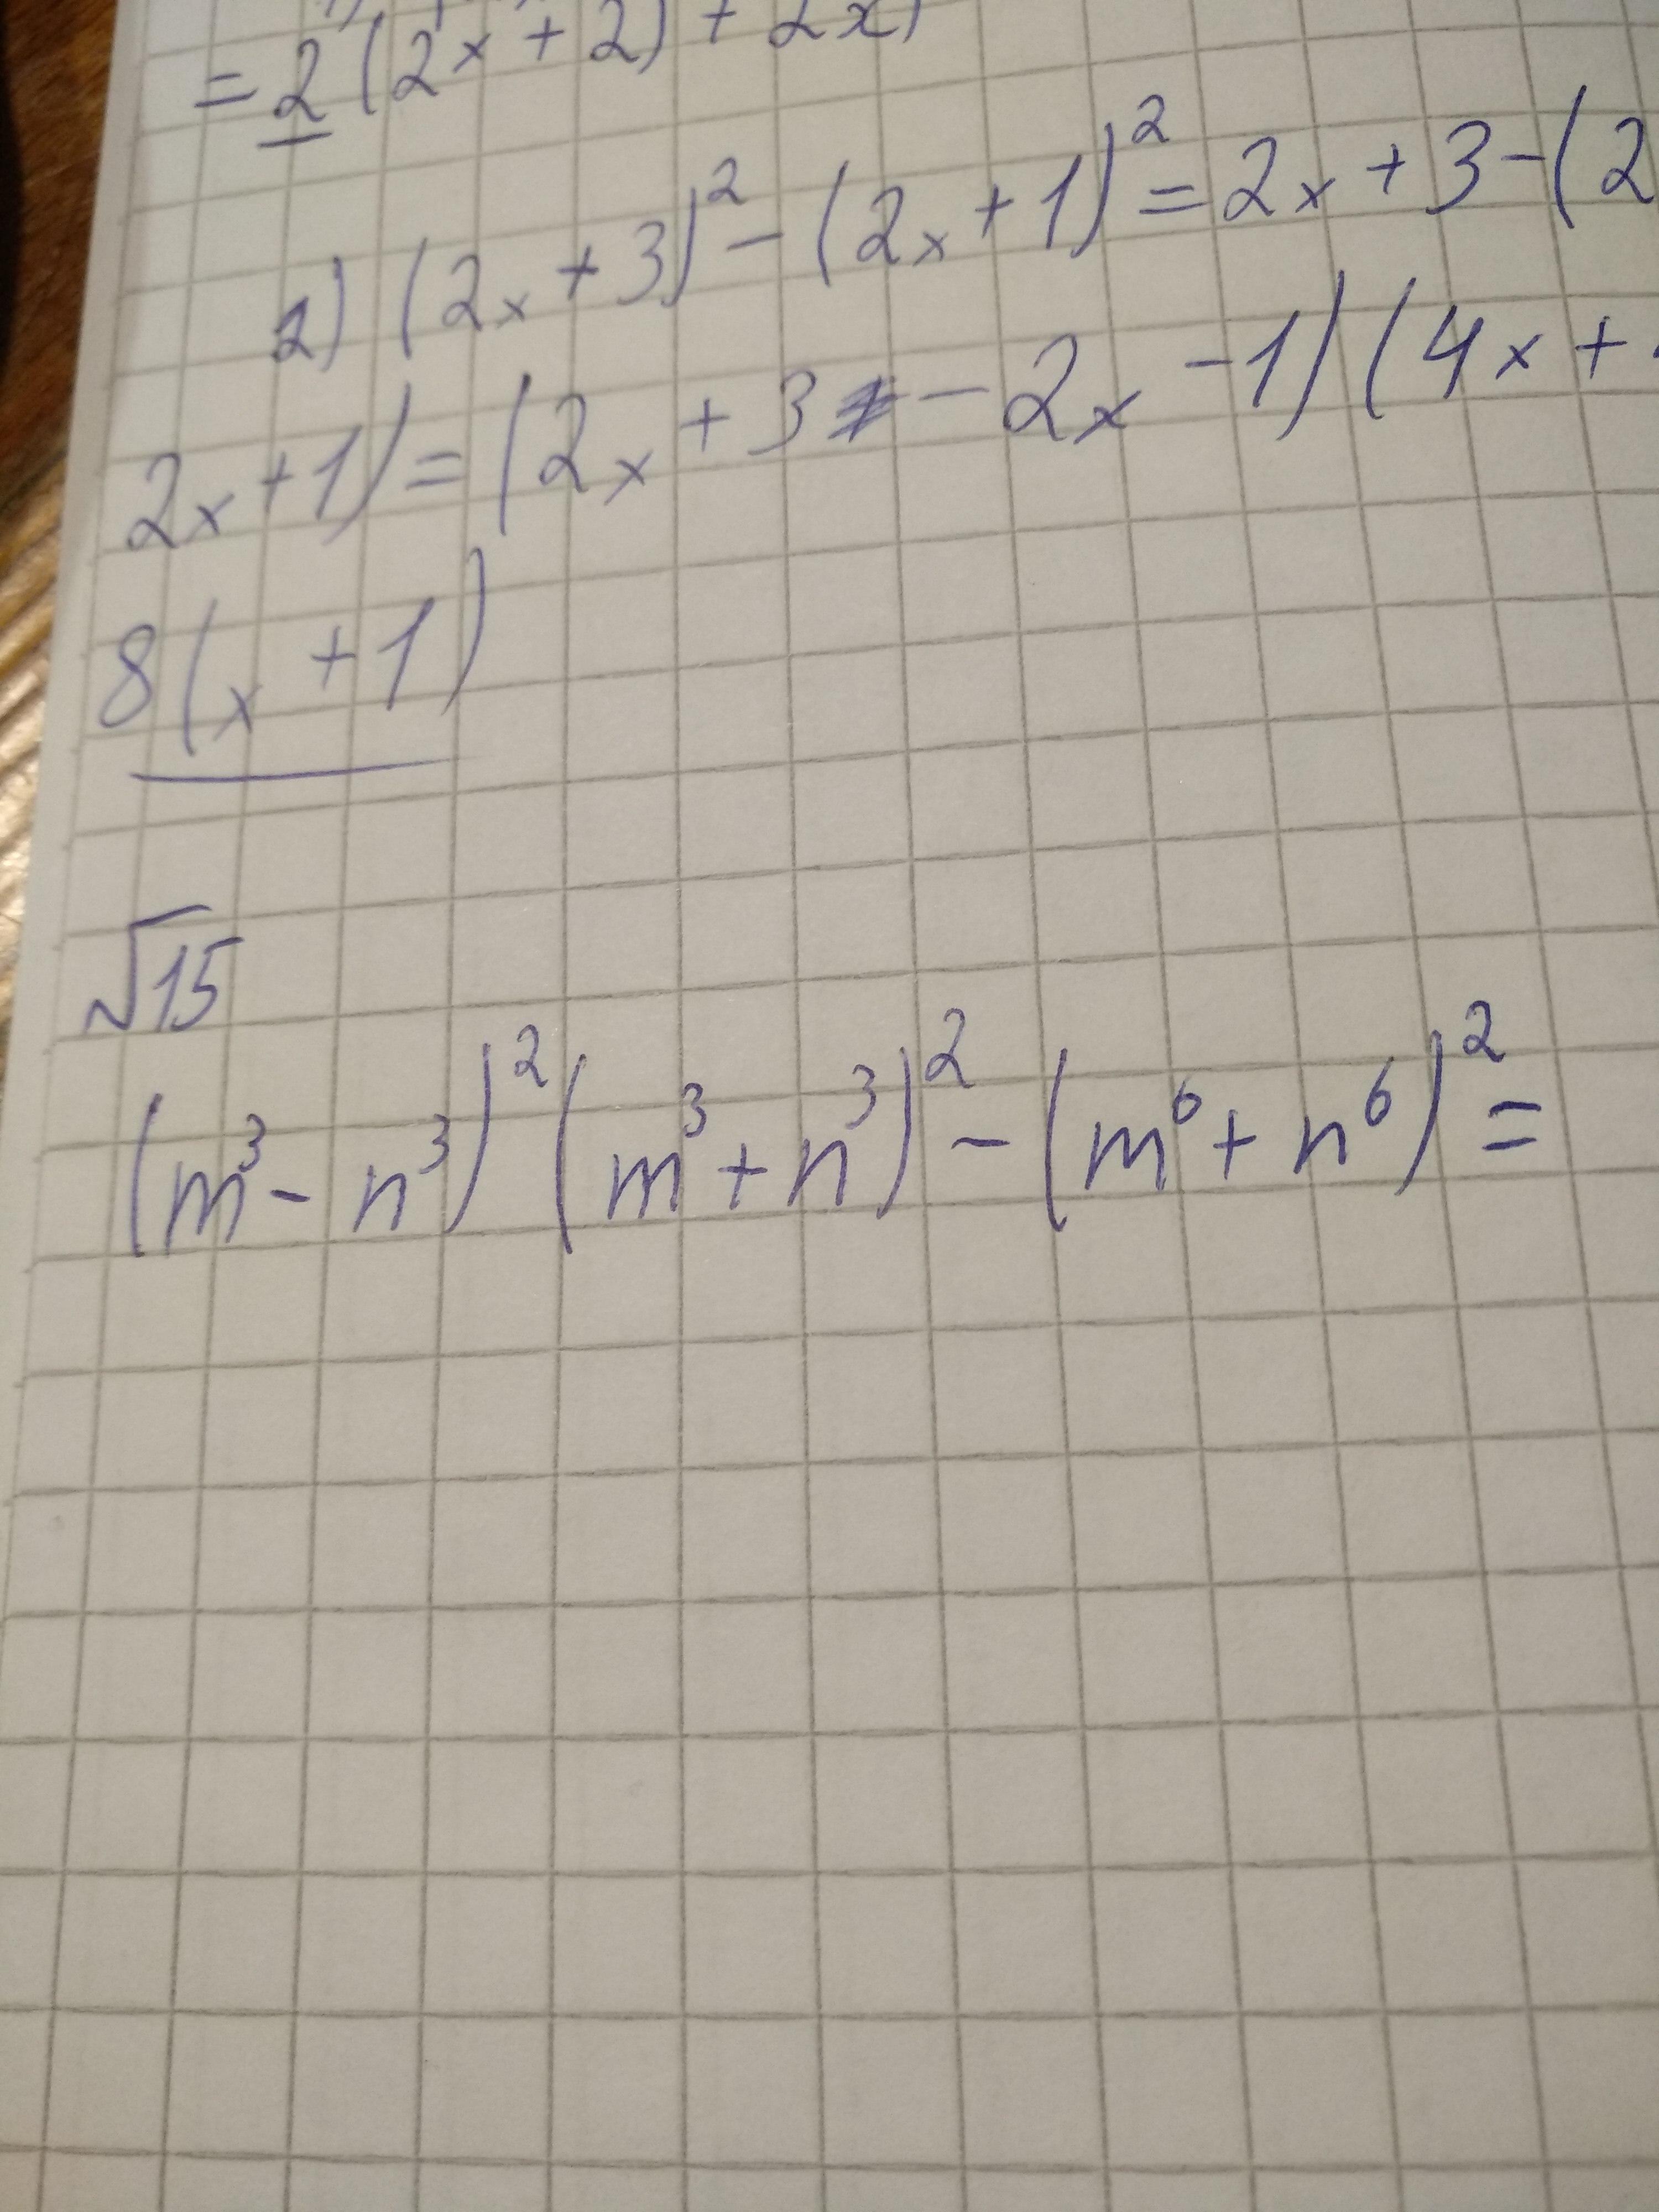 = 2 (2x + 2) + 2x)
2) (2x + 3)² - (2x + 1)² = 2x + 3 - (2
2x + 1) = (2x + 3 - 2x - 1) (4x +
8 (x + 1)
√15
(m³ - n³)² (m³ + n³)² - (m⁶ + n⁶)² =